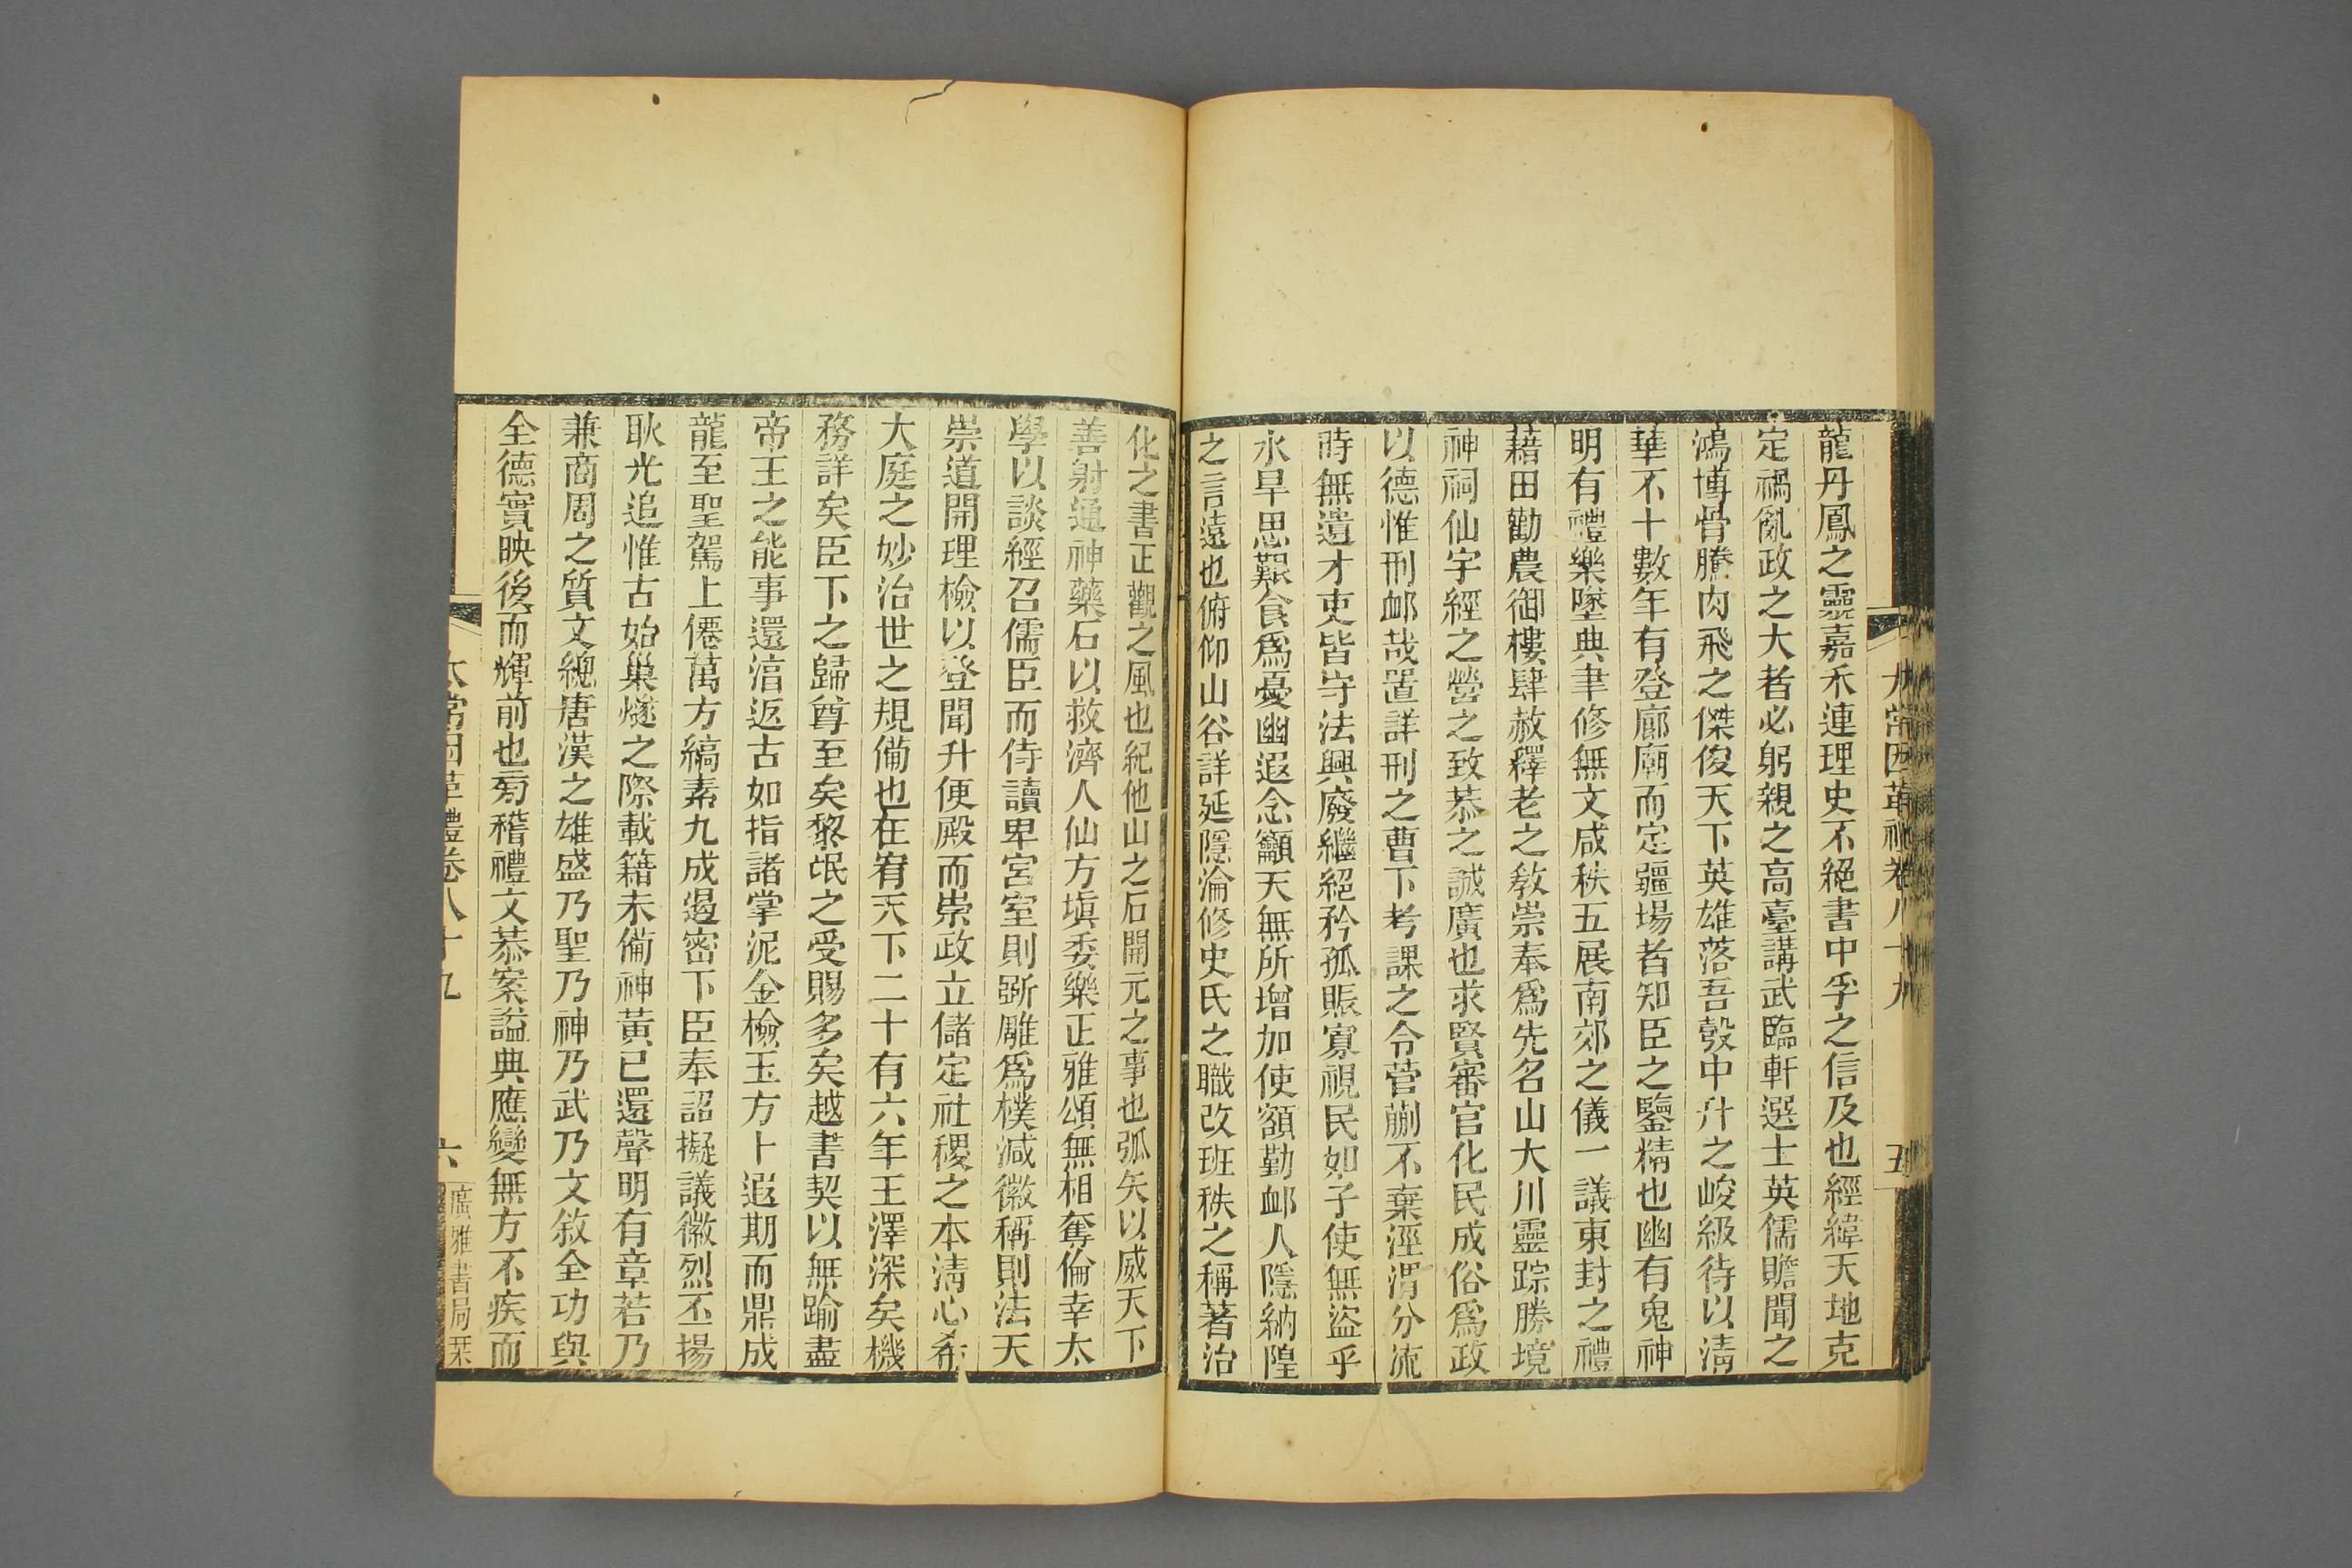 太常因革禮卷八十九
五
龍丹鳳之靈嘉禾連理史不絕書中孚之信及也經緯天地克
定禍亂政之大者必躬親之高臺講武臨軒選士英儒贍聞之
鴻博骨騰肉飛之傑俊天下英雄落吾彀中升之峻級待以清
華不十數年有登廊廟而定疆場者知臣之鑒精也幽有鬼神
明有禮樂墜典聿修無文咸秩五展南郊之儀一議東封之禮
藉田勸農御樓肆赦釋老之教崇奉爲先名山大川靈踪勝境
神祠仙宇經之營之致恭之誠廣也求賢審官化民成俗爲政
以德惟刑卹哉置詳刑之曹下考課之令菅蒯不棄涇渭分流
時無遺才吏皆守法興廢繼絕矜孤賑寡視民如子使無盜乎
水旱思艱食爲憂幽遐念籲天無所增加使額勤卹人隱納隍
之言遠也俯仰山谷詳延隱淪修史氏之職改班秩之稱著治
化之書正觀之風也紀他山之石開元之事也弧矢以威天下
善射通神藥石以救濟人仙方塡委樂正雅頌無相奪倫幸太
學以談經召儒臣而侍讀卑宮室則斲雕爲樸減徽稱則法天
崇道開理檢以登聞升便殿而崇政立儲定社稷之本清心希
大庭之妙治世之規備也在宥天下二十有六年王澤深矣機
務詳矣臣下之歸尊至矣黎氓之受賜多矣越書契以無踰盡
帝王之能事還淳返古如指諸掌泥金檢玉方卜遐期而鼎成
龍至聖駕上僊萬方縞素九成遏密下臣奉詔擬議徽烈丕揚
耿光追惟古始巢燧之際載籍未備神黃已還聲明有章若乃
兼商周之質文總唐漢之雄盛乃聖乃神乃武乃文敘全功與
全德實映後而輝前也菊稽禮文恭案謚典應變無方不疾而
太常因革禮卷八十九
六
廣雅書局栞